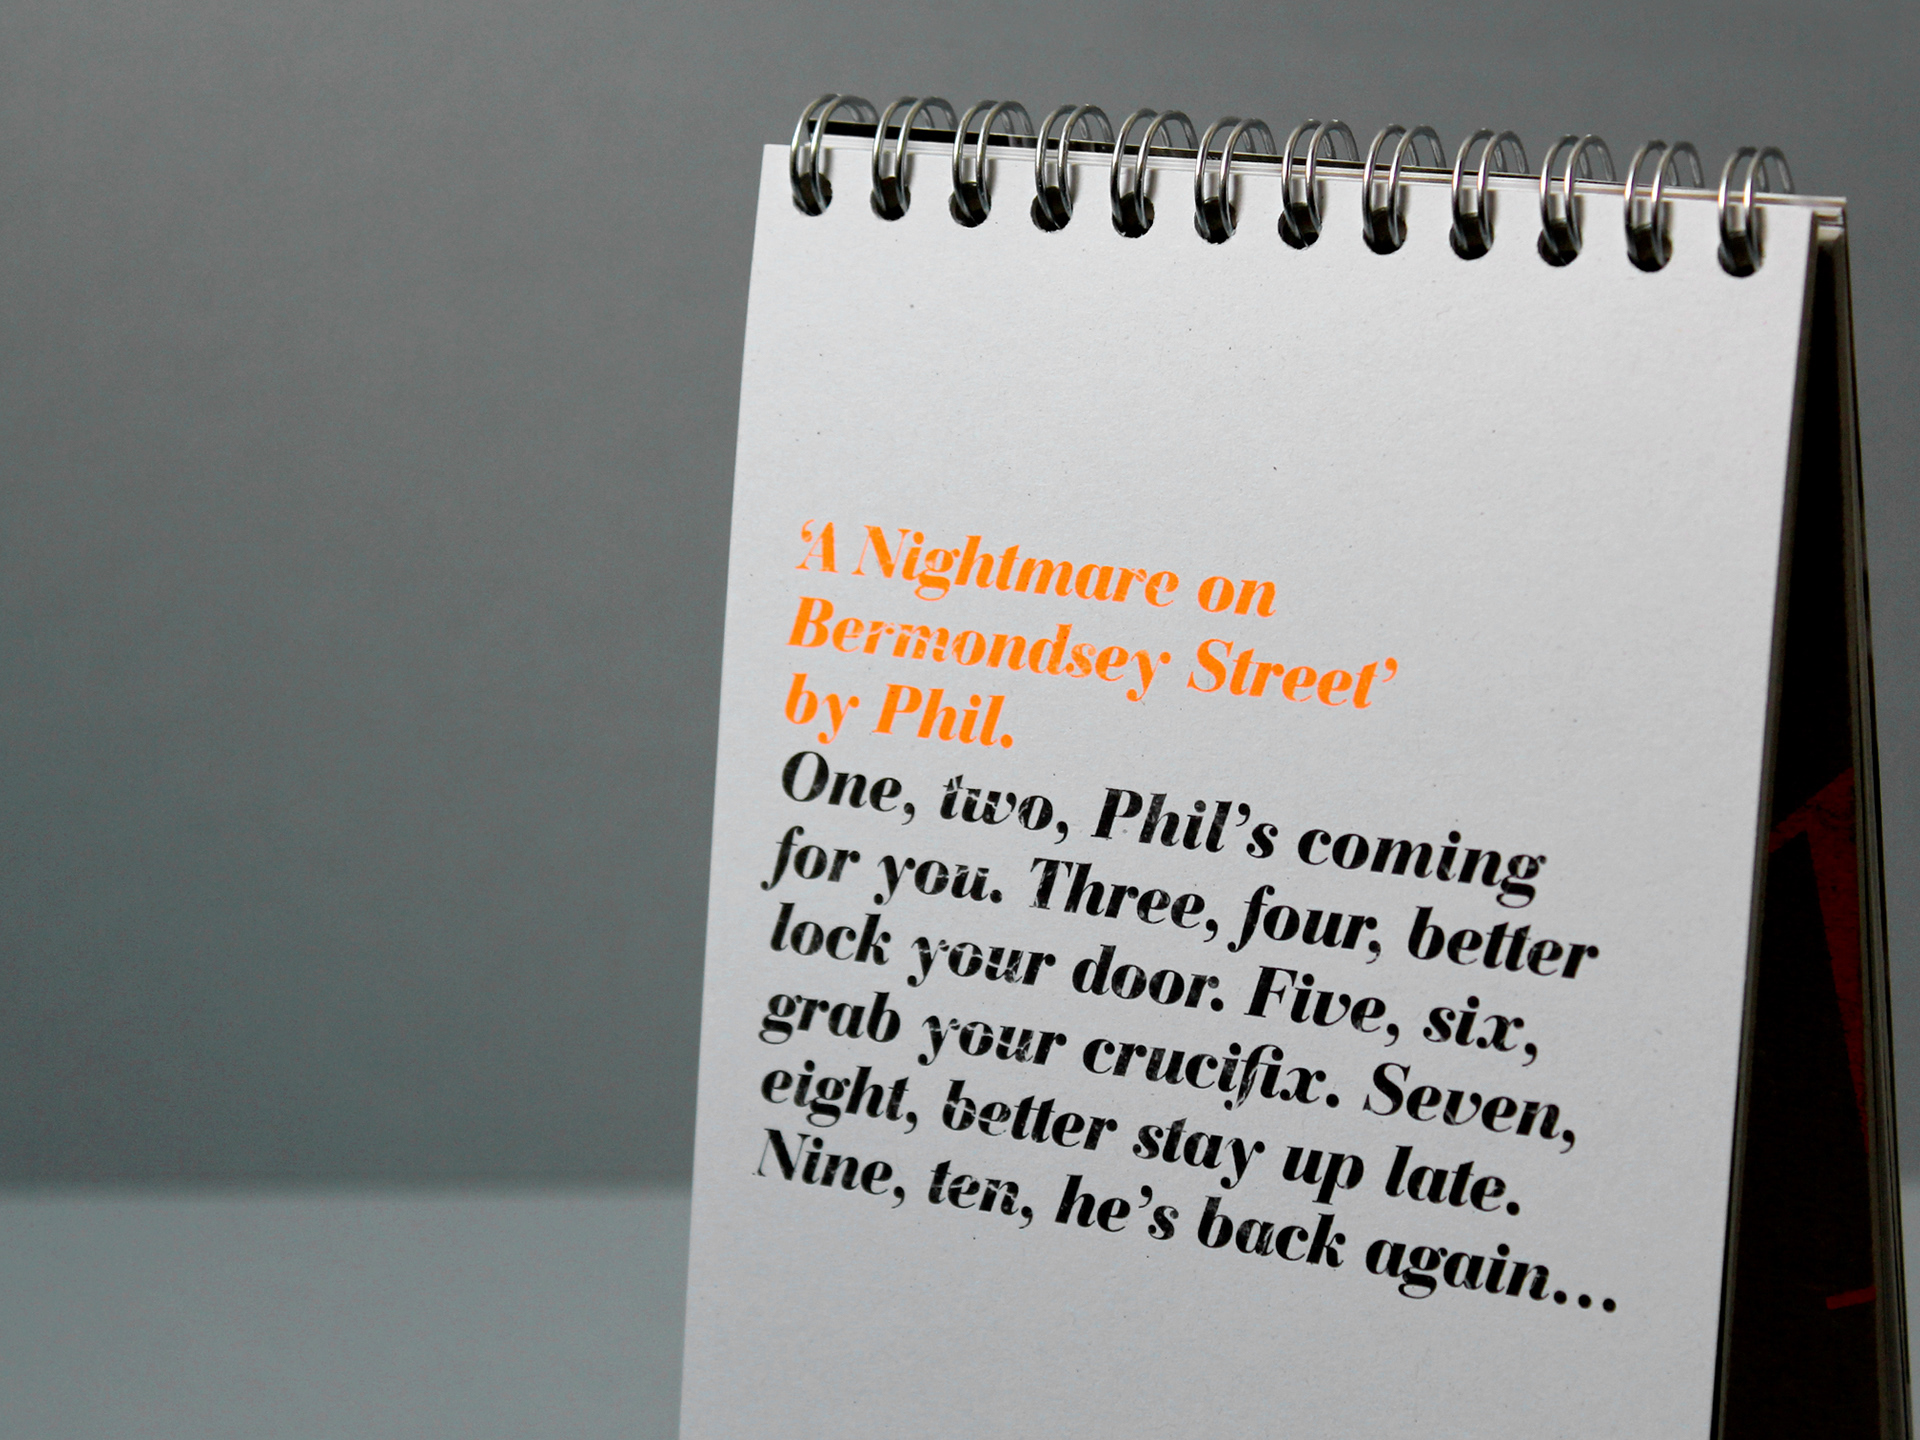 ‘A Nightmare on
Bermondsey Street’
by Phil.
One, two, Phil’s coming
for you. Three, four, better
lock your door. Five, six,
grab your crucifix. Seven,
eight, better stay up late.
Nine, ten, he’s back again…